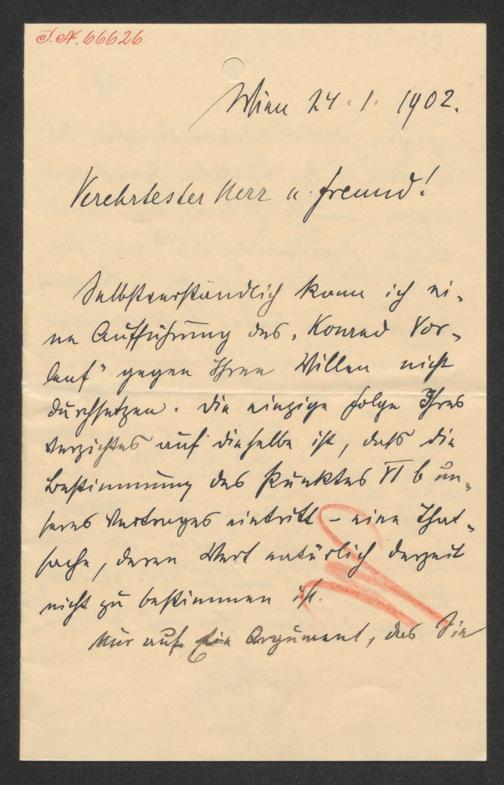 J.N. 66626
Wien 24. 1. 1902.
Verehrtester Herr u. Freund!
Selbstverständlich kann ich ei-
ne Aufführung des „Konrad Vor-
lauf" gegen Ihren Willen nicht
durchsetzen. Die einzige Folge Ihres
Verzichtes auf dieselbe ist, daß die
Bestimmung des Punktes VI b un-
seres Vertrages eintritt – eine That-
sache, deren Wert natürlich derzeit
nicht zu bestimmen ist.
Nur auf ein Argument, das Sie